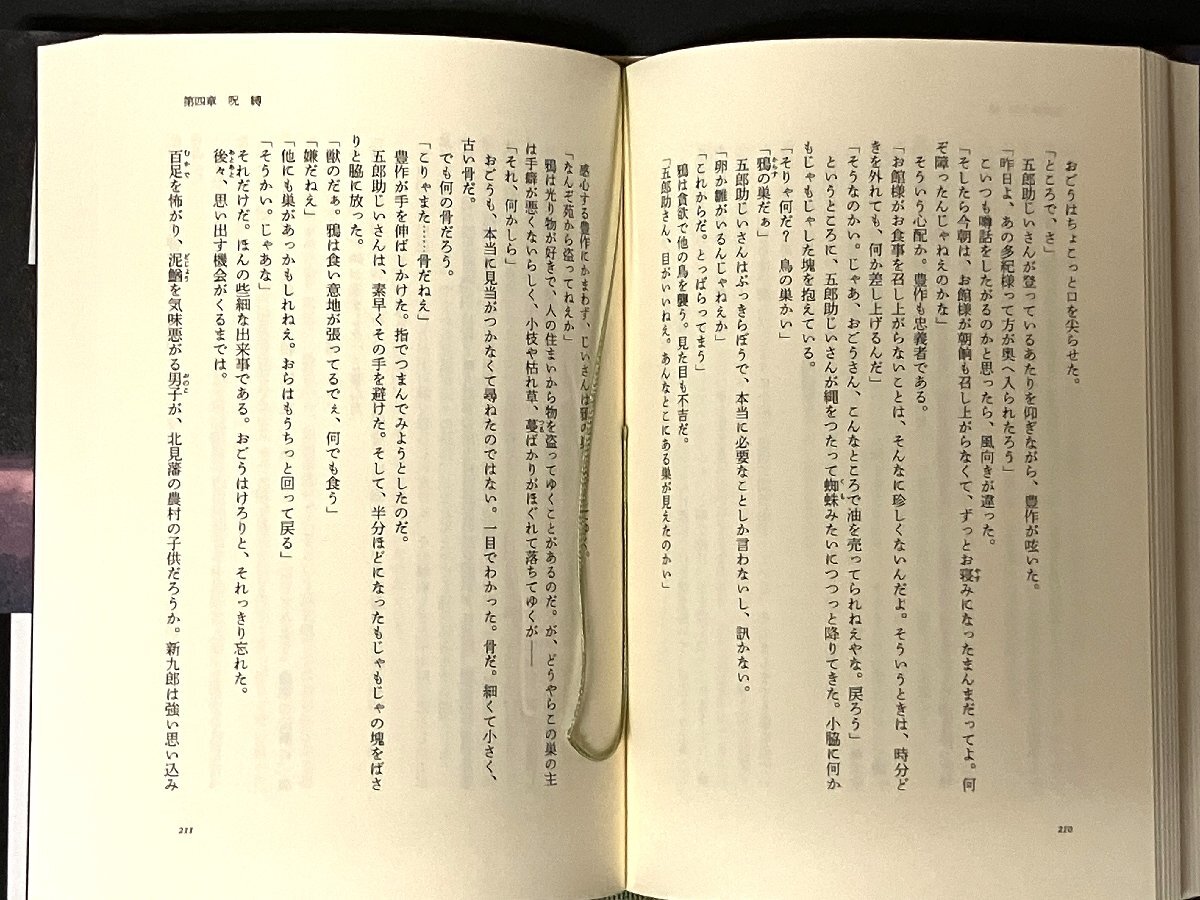 おごうはちょこっと口を尖らせた。
「ところで、さ」
五郎助じいさんが登っているあたりを仰ぎながら、豊作が呟いた。
「昨日よ、あの多紀様って方が奥へ入られたろう」
こいつも噂話をしたがるのかと思ったら、風向きが違った。
「そしたら今朝は、お館様が朝餉も召し上がらなくて、ずっとお寝みになったまんまだってよ。何
ぞ障ったんじゃねえのかな」
そういう心配か。豊作も忠義者である。
「お館様がお食事を召し上がらないことは、そんなに珍しくないんだよ。そういうときは、時分ど
きを外れても、何か差し上げるんだ」
「そうなのかい。じゃあ、おごうさん、こんなところで油を売ってられねえやな。戻ろう」
というところに、五郎助じいさんが縄をつたって蜘蛛みたいにつつっと降りてきた。小脇に何か
もじゃもじゃした塊を抱えている。
「そりゃ何だ？　鳥の巣かい」
「鴉の巣だぁ」
五郎助じいさんはぶっきらぼうで、本当に必要なことしか言わないし、訊かない。
「卵か雛がいるんじゃねえか」
「これからだ。とっぱらってまう」
鴉は貪欲で他の鳥を襲う。見た目も不吉だ。
「五郎助さん、目がいいねえ。あんなとこにある巣が見えたのかい」
210
第四章　呪縛
感心する豊作にかまわず、じいさんは
「なんぞ苑から盗ってねえか」
鴉は光り物が好きで、人の住まいから物を盗ってゆくことがあるのだ。が、どうやらこの巣の主
は手癖が悪くないらしく、小枝や枯れ草、蔓ばかりがほぐれて落ちてゆくが――
「それ、何かしら」
おごうも、本当に見当がつかなくて尋ねたのではない。一目でわかった。骨だ。細くて小さく、
古い骨だ。
でも何の骨だろう。
「こりゃまた……骨だねえ」
豊作が手を伸ばしかけた。指でつまんでみようとしたのだ。
五郎助じいさんは、素早くその手を避けた。そして、半分ほどになったもじゃもじゃの塊をばさ
りと脇に放った。
「獣のだぁ。鴉は食い意地が張ってるでぇ、何でも食う」
「嫌だねえ」
「他にも巣があっかもしれねえ。おらはもうちっと回って戻る」
「そうかい。じゃあな」
それだけだ。ほんの些細な出来事である。おごうはけろりと、それっきり忘れた。
後々、思い出す機会がくるまでは。
百足を怖がり、泥鰌を気味悪がる男子が、北見藩の農村の子供だろうか。新九郎は強い思い込み
211